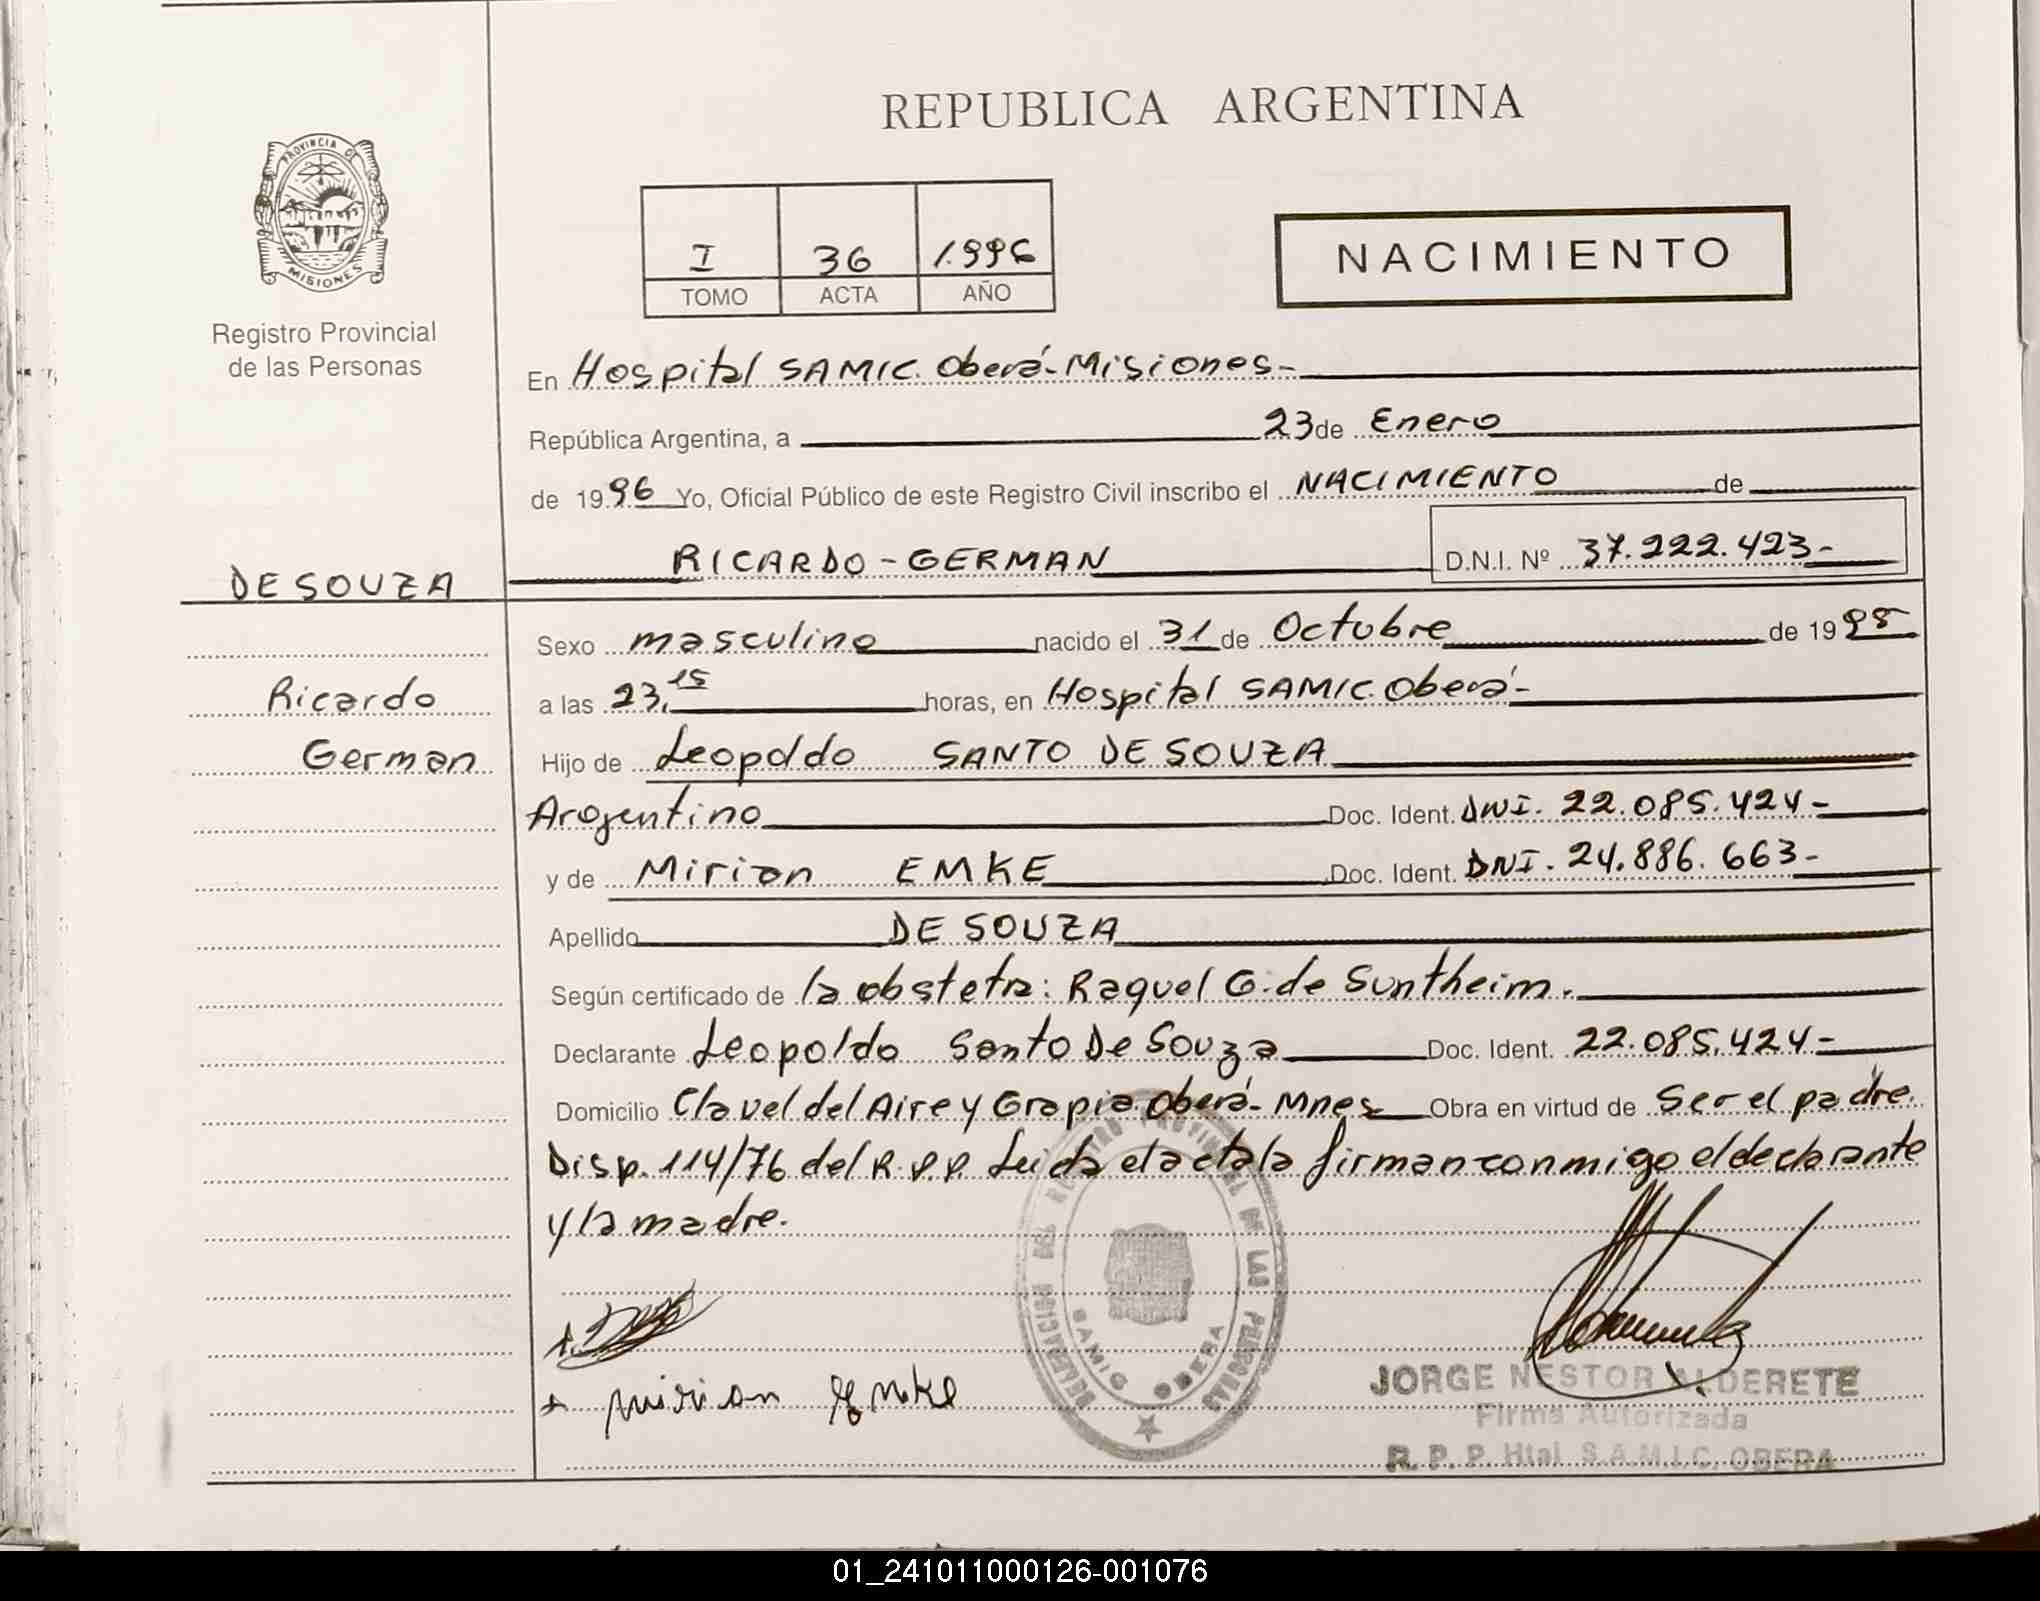 REPUBLICA ARGENTINA
PROVINCIA DE
MISIONES
Registro Provincial
de las Personas
I 36 1.996
TOMO ACTA AÑO
NACIMIENTO
En Hospital SAMIC. Oberá-Misiones-
República Argentina, a 23 de Enero
de 1996 Yo, Oficial Público de este Registro Civil inscribo el NACIMIENTO de
DE SOUZA
RICARDO-GERMAN D.N.I. Nº 37.222.423-
Sexo masculino nacido el 31 de Octubre de 1995
Ricardo
a las 23,15 horas, en Hospital SAMIC. Oberá-
German
Hijo de Leopoldo SANTO DE SOUZA
Argentino Doc. Ident. DNI. 22.085.424-
y de Mirian EMKE Doc. Ident. DNI. 24.886.663-
Apellido DE SOUZA
Según certificado de la obstetra: Raquel G. de Suntheim.
Declarante Leopoldo Santo De Souza Doc. Ident. 22.085.424-
Domicilio Clavel del Aire y Grapia Oberá-Mnes Obra en virtud de Ser el padre.
Disp. 114/76 del R.P.P. Leida el acta la firman conmigo el declarante
y la madre.
DELEGACION DEL REGISTRO PROVINCIAL DE LAS PERSONAS
SAMIC OBERA
Mirian Emke
JORGE NESTOR ALDERETE
Firma Autorizada
R. P. P. Htal. S.A.M.I.C. OBERA
01_241011000126-001076